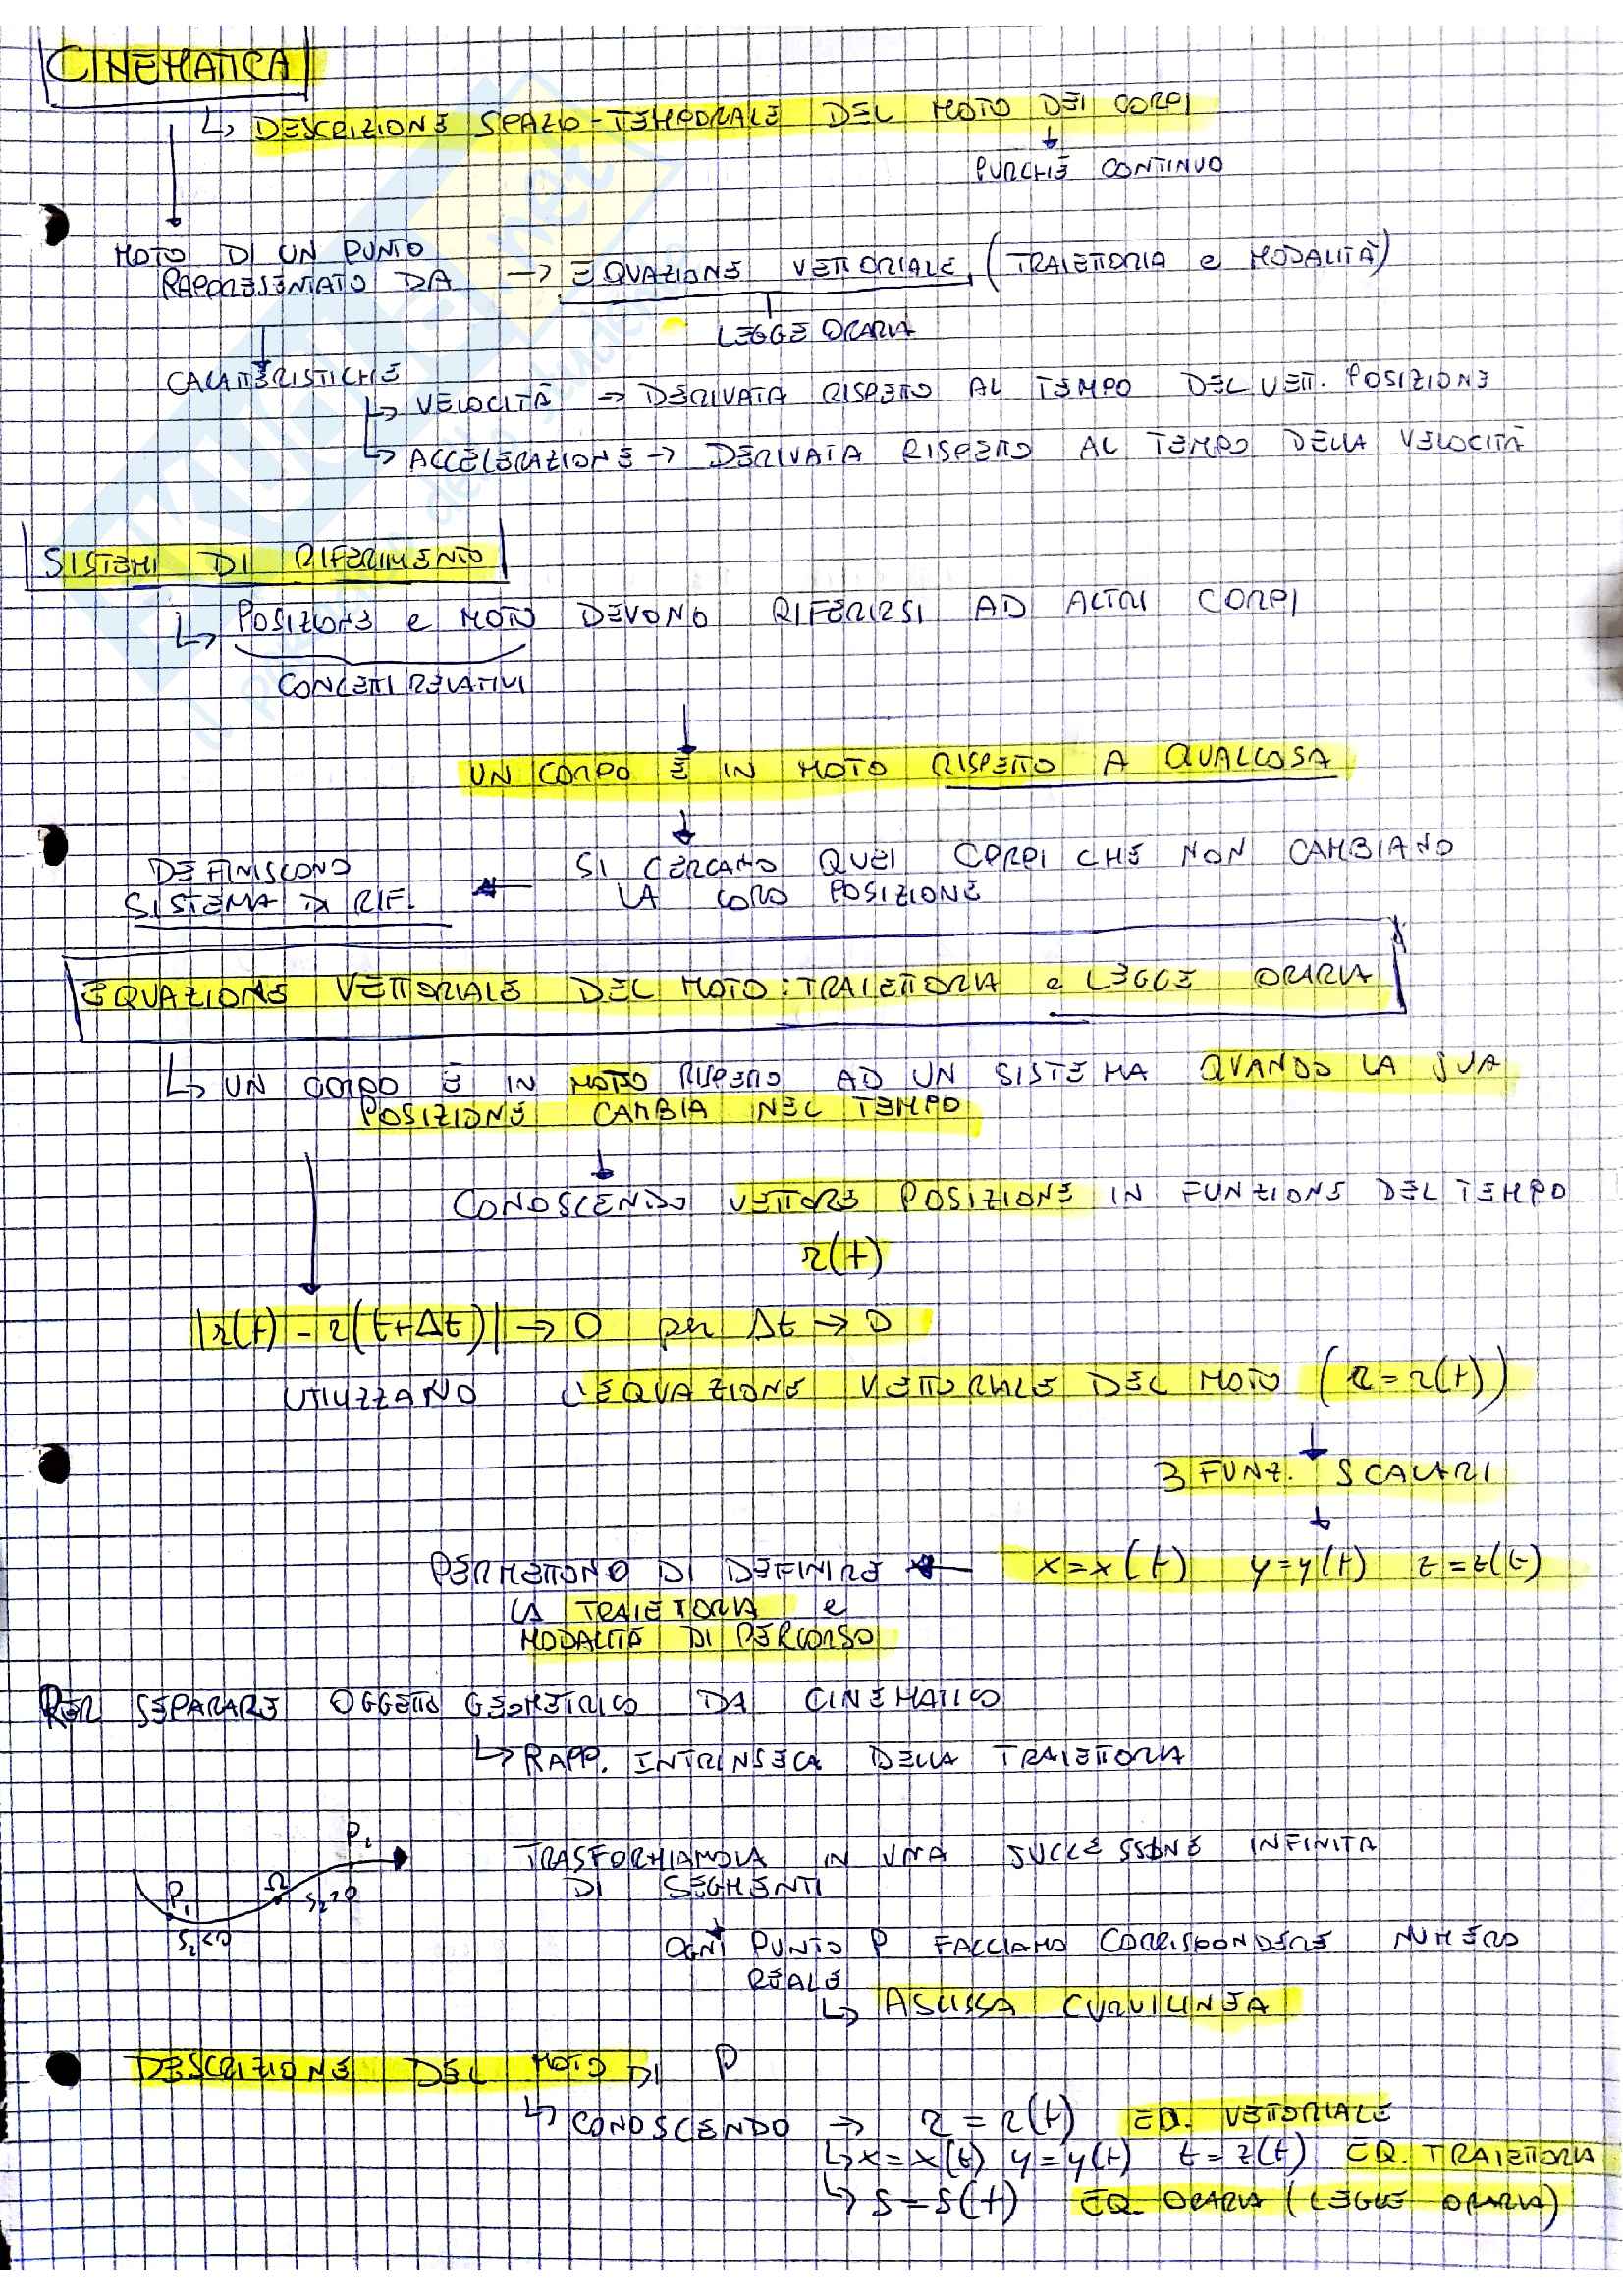 CINEMATICA
↳ DESCRIZIONE SPAZIO-TEMPORALE DEL MOTO DEI CORPI
PURCHÈ CONTINUO
MOTO DI UN PUNTO
RAPPRESENTATO DA → EQUAZIONE VETTORIALE (TRAIETTORIA e MODALITÀ)
LEGGE ORARIA
CARATTERISTICHE
↳ VELOCITÀ → DERIVATA RISPETTO AL TEMPO DEL VETT. POSIZIONE
↳ ACCELERAZIONE → DERIVATA RISPETTO AL TEMPO DELLA VELOCITÀ
SISTEMI DI RIFERIMENTO
↳ POSIZIONE e MOTO DEVONO RIFERIRSI AD ALTRI CORPI
CONCETTI RELATIVI
UN CORPO È IN MOTO RISPETTO A QUALCOSA
SI CERCANO QUEI CORPI CHE NON CAMBIANO
LA LORO POSIZIONE
DEFINISCONO
SISTEMA DI RIF.
EQUAZIONE VETTORIALE DEL MOTO: TRAIETTORIA e LEGGE ORARIA
↳ UN CORPO È IN MOTO RISPETTO AD UN SISTEMA QUANDO LA SUA
POSIZIONE CAMBIA NEL TEMPO
CONOSCENDO VETTORE POSIZIONE IN FUNZIONE DEL TEMPO
r(t)
|r(t) - r(t+Δt)| → 0 per Δt → 0
UTILIZZANO L'EQUAZIONE VETTORIALE DEL MOTO (r = r(t))
3 FUNZ. SCALARI
x=x(t) y=y(t) z=z(t)
PERMETTONO DI DEFINIRE
LA TRAIETTORIA e
MODALITÀ DI PERCORSO
PER SEPARARE OGGETTO GEOMETRICO DA CINEMATICO
↳ RAPP. INTRINSECA DELLA TRAIETTORIA
P₂
P₁
Ω
S₂>0
S₁<0
TRASFORMIAMOLA IN UNA SUCCESSIONE INFINITA
DI SEGMENTI
OGNI PUNTO P FACCIAMO CORRISPONDERE NUMERO
REALE
↳ ASCISSA CURVILINEA
DESCRIZIONE DEL MOTO DI P
↳ CONOSCENDO → r = r(t) EQ. VETTORIALE
↳ x=x(t) y=y(t) z=z(t) EQ. TRAIETTORIA
↳ s=s(t) EQ. ORARIA (LEGGE ORARIA)